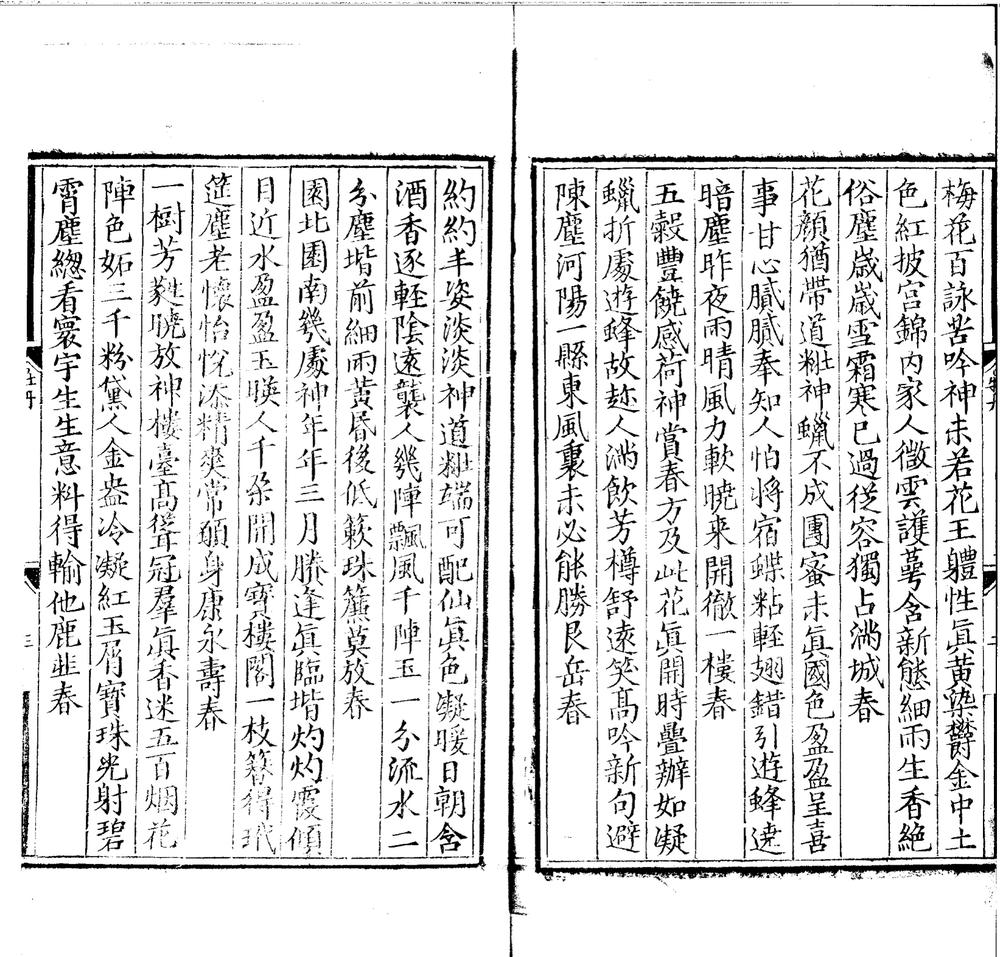 梅花百詠苦吟神未若花王體性眞黄染欝金中土
色紅披宫錦内家人微雲護萼含新態細雨生香絶
俗塵歳歳雪霜寒已過従容獨占滿城春
花顔猶帶道粧神蠟不成團蜜未眞國色盈盈呈喜
事甘心膩膩奉知人怕將宿蝶粘輕翅錯引遊蜂遶
暗塵昨夜雨晴風力軟曉来開徹一樓春
五榖豐饒感荷神賞春方及此花眞開時疊辦如凝
蠟折處遊蜂故趂人滿飲芳樽舒遠笑髙吟新句避
陳塵河陽一縣東風裏未必能勝艮岳春
約約丰姿淡淡神道粧端可配仙眞色凝暖日朝含
酒香逐輕陰遠襲人幾陣飄風千陣玉一分流水二
分塵堦前細雨黄昏後低簌珠簾莫放春
園北園南幾處神年年三月勝逢眞臨堦灼灼霞傾
日近水盈盈玉暎人千朶開成寳樓閣一枝簪得玳
筵塵老懷怡悅添精爽常願身康永壽春
一樹芳蕤曉放神樓臺髙聳冠羣眞香迷五百烟花
陣色妬三千粉黛人金盎冷凝紅玉屑寳珠光射碧
霄塵總看寰宇生生意料得輸他鹿韭春
牡丹
三